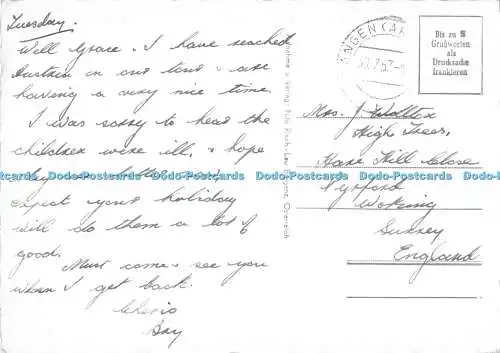 Tuesday.
Well Grace. I have reached
Austria in our tour & are
having a very nice time.
I was sorry to hear the
children were ill, & hope
they
expect your holiday
will do them a lot of
good.
Must come & see you
when I get back.
Cherio
Bis zu 5
Grußworten
als
Drucksache
frankieren
Mrs. J
High Trees,
Hill Close
Woking
Surrey
England
Dodo-Postcards Dodo-Postcards Dodo-Postcards Dodo-Postcards Dodo-Postcards Dodo-Postcards